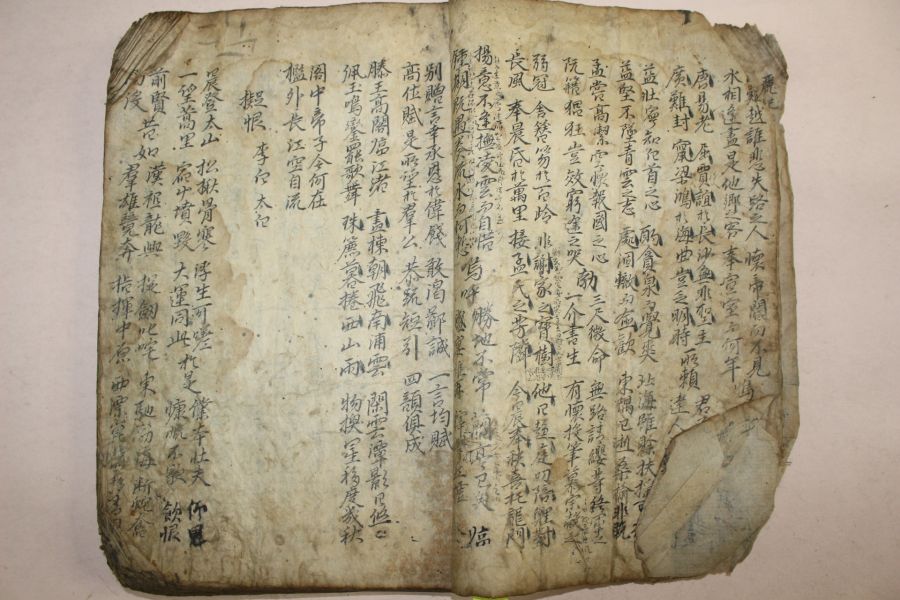 難越誰悲失路之人 懷帝閽而不見
水相逢盡是他鄉之客 奉宣室而何年
唐易老 屈賈誼於長沙無非聖主 君
廣難封 竄梁鴻於海曲豈乏明時 所賴 達人
益壯寧知白首之心 酌貪泉而覺爽 北海雖賖扶搖可
益堅不墜青雲之志 處涸轍而猶歡 東隅已逝桑榆非晩
孟嘗高潔空懷報國之心 勃 三尺微命 無路請纓等終軍之
阮籍猖狂豈效窮途之哭 一介書生 有懷投筆慕宗慤之
弱冠 舍簪笏於百齡 非謝家之寶樹 他日趨庭叨陪鯉對
長風 奉晨昏於萬里 接孟氏之芳隣 今晨奉袂喜托龍門
揚意不逢撫凌雲而自惜 嗚呼 勝地不常 臨
鍾期旣遇奏流水而何慙
別贈言幸承恩於偉餞 敢渴鄙誠 一言均賦
高仕賦是所望於羣公 恭䟽短引 四韻俱成
滕王高閣臨江渚 畫棟朝飛南浦雲 閑雲潭影日悠〻
佩玉鳴鸞罷歌舞 珠簾暮捲西山雨 物換星移度幾秋
閣中帝子今何在
檻外長江空自流
擬恨 李白 太白
晨登太山 松楸骨寒 浮生可嗟 僕本壯夫 仰思
一望蒿里 宿草墳毀 大運同此 於是 慷慨不歇 飮恨
前賢 昔如 漢祖龍興 按劒叱咤 東馳渤海 斷蛇奮
而沒 羣雄競奔 指揮中原 西漂崑崙